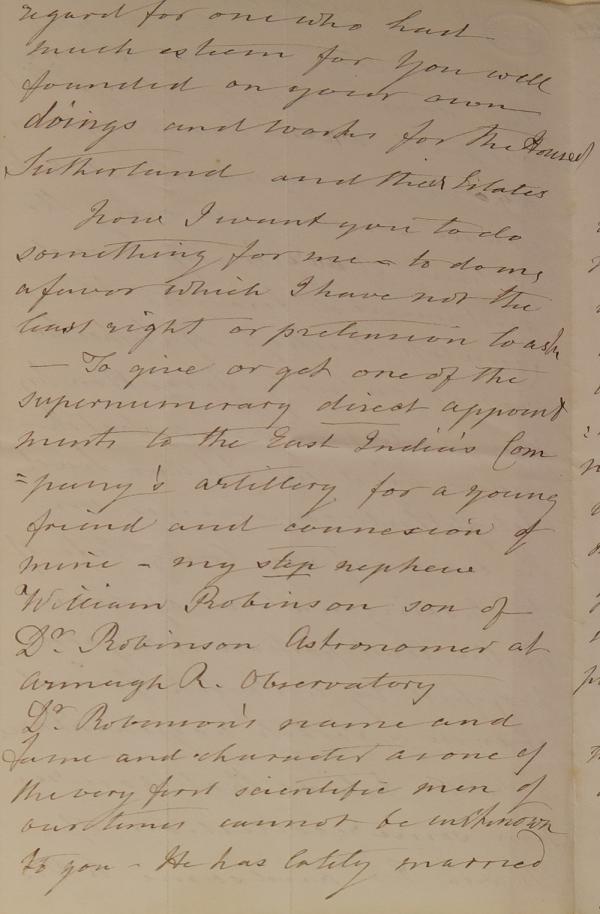 regard for one who had
much esteem for you well
founded on your own
doings and works for the House of
Sutherland and their Estates
Now I want you to do
something for me - to do me
a favor which I have not the
least right or pretension to ask
— To give or get one of the
supernumerary direct appoint
ments to the East India's Com
=pany's artillery for a young
friend and connexion of
mine - my step nephew
William Robinson son of
Dr. Robinson Astronomer at
Armagh R. Observatory
Dr. Robinson's name and
fame and character as one of
the very first scientific men of
our times cannot be unknown
to you - He has lately married